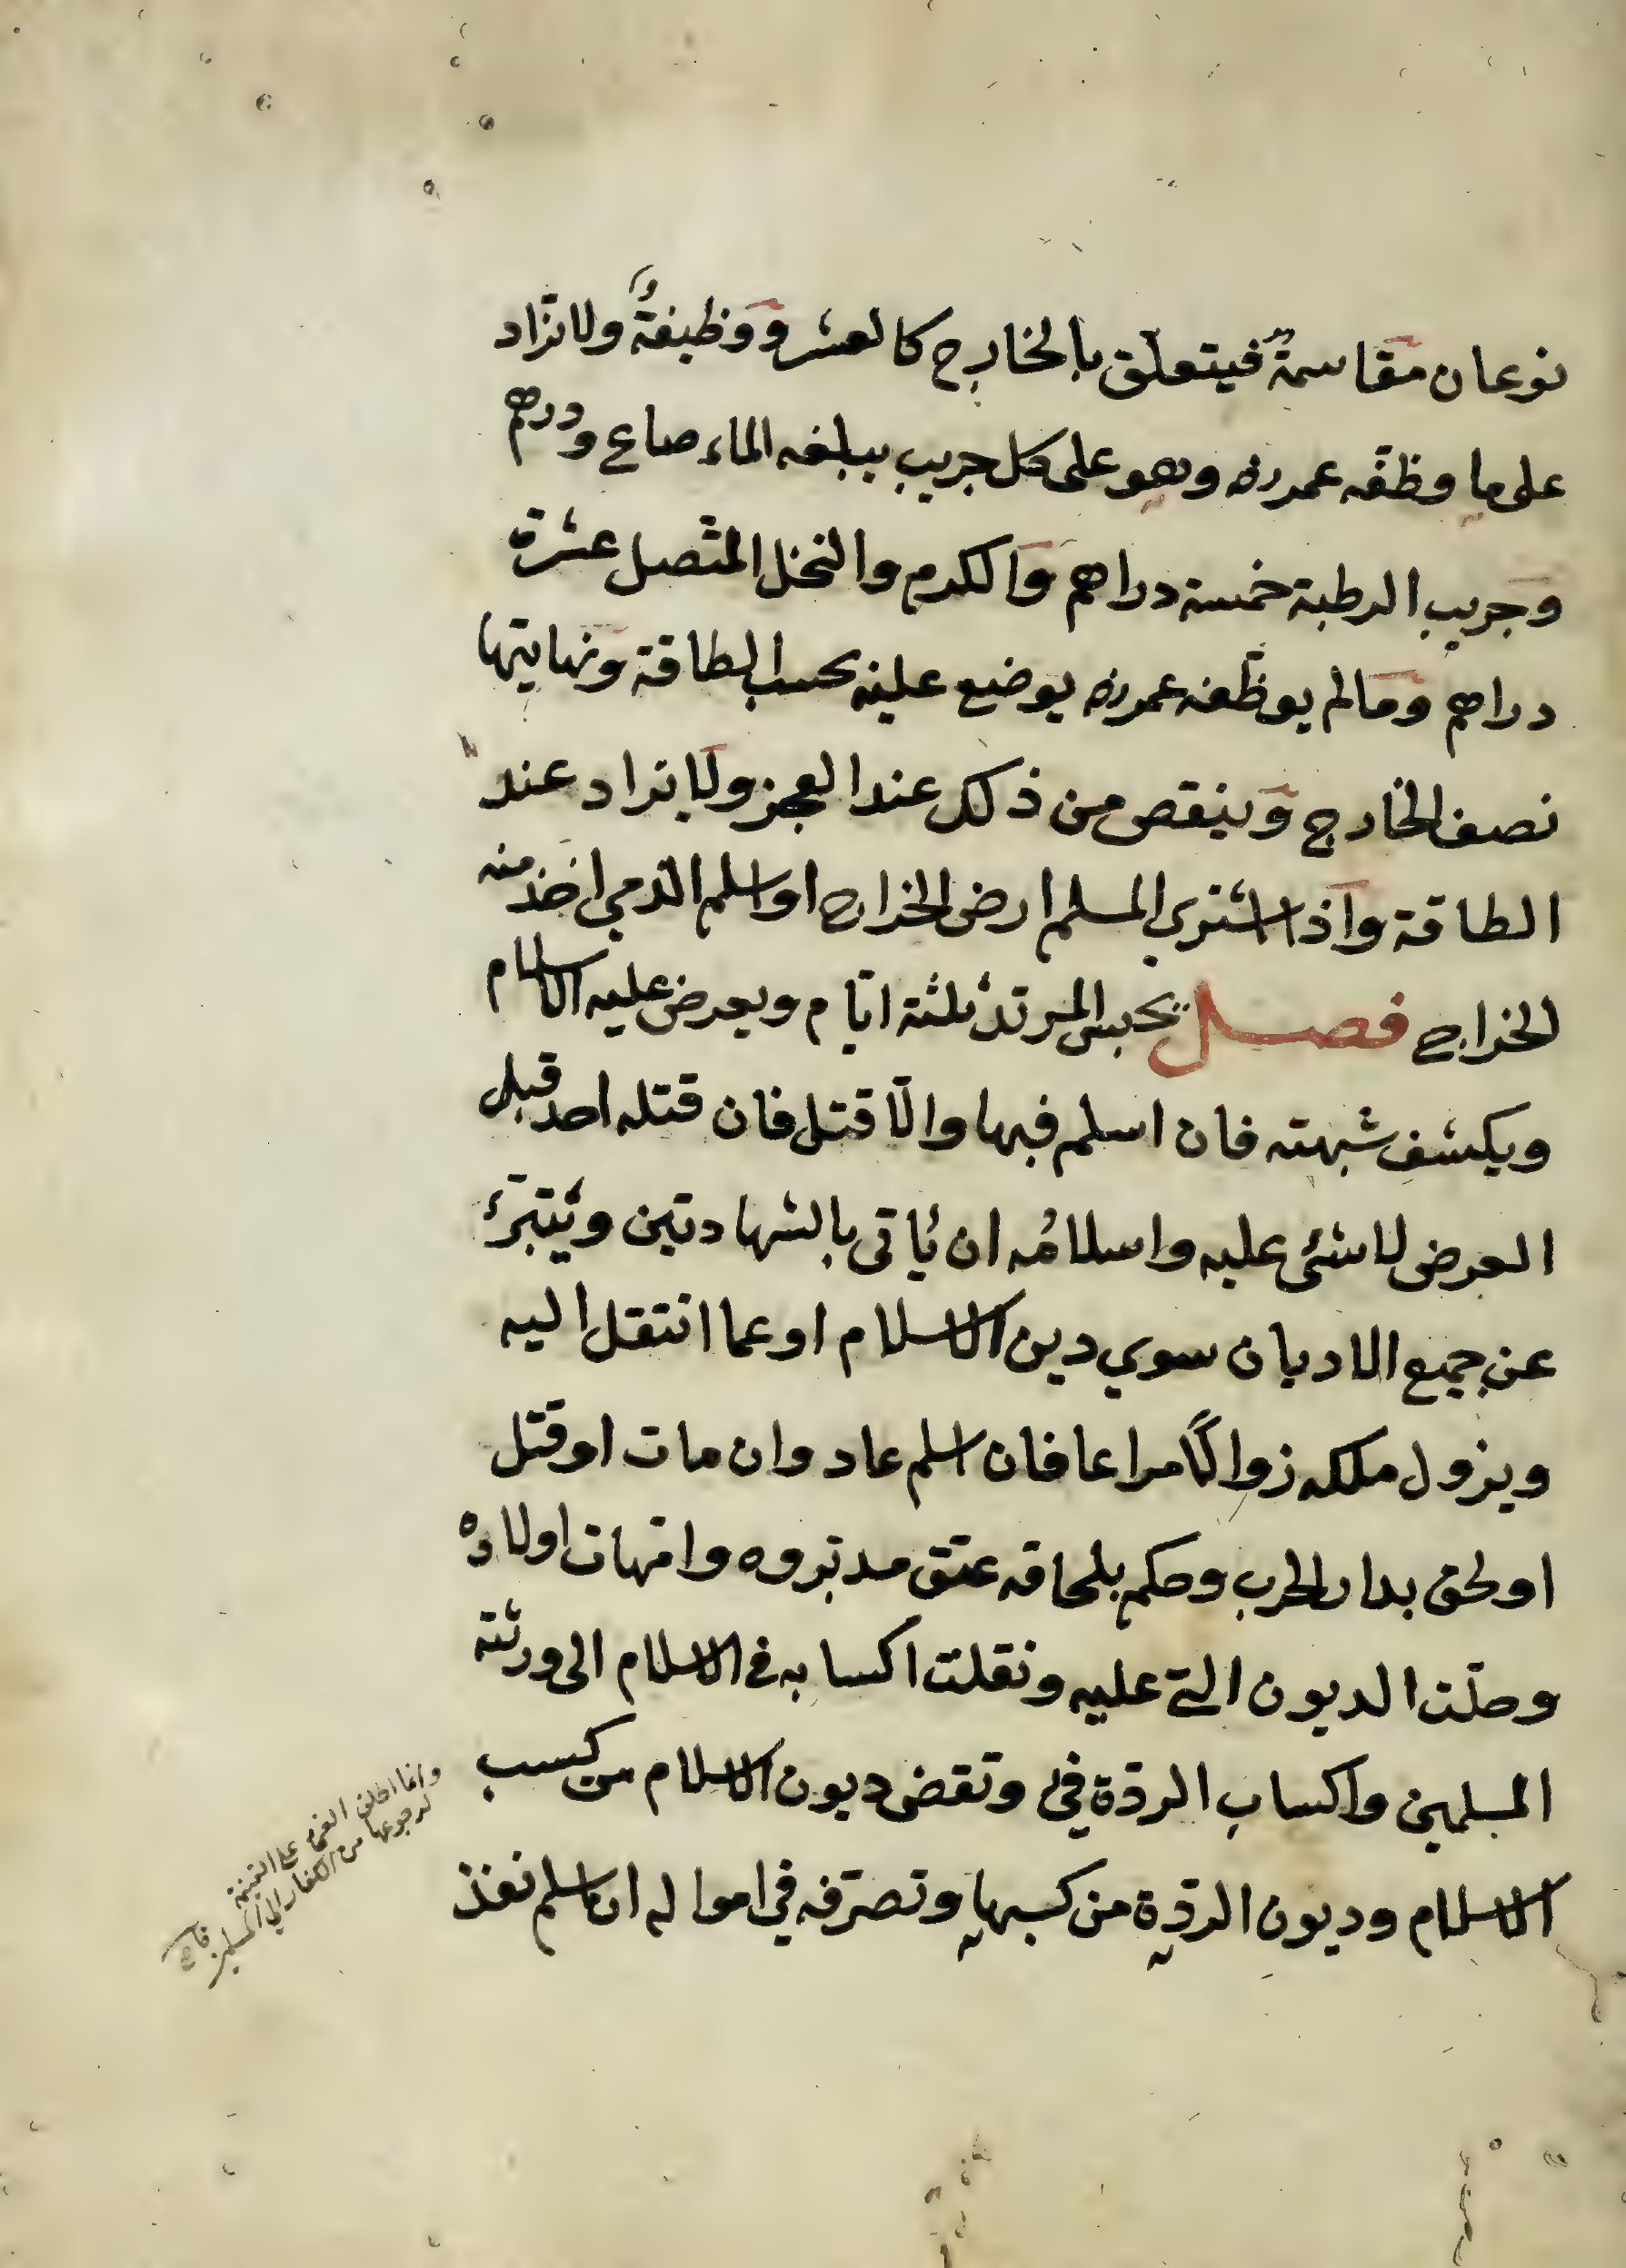 نوعان مقاسمةٌ فيتعلق بالخارج كالعشر ووظيفةٌ ولا تزاد
على ما وظفه عمر رضه وهو على كل جريب يبلغه الماء صاع ودرهم
وجريب الرطبة خمسة دراهم والكرم والنخل المتّصل عشرة
دراهم وما لم يوظّفه عمر رضه يوضع عليه بحسب الطاقة ونهايتها
نصف الخارج وينقص من ذلك عند العجز ولا يزاد عند
الطاقة واذا اشترى المسلم ارض الخراج او اسلم الذمي اخذ منه
الخراج فصل يحبس المرتدّ ثلثة ايّام ويعرض عليه الاسلام
ويكشف شبهته فان اسلم فيها والّا قتل فان قتله احد قبل
العرض لا شئ عليه واسلامُه ان يُاتى بالشهادتين ويتبرّئ
عن جميع الاديان سوي دين الاسلام او عما انتقل اليه
ويزول ملكه زوالًا مراعا فان اسلم عاد وان مات او قتل
او لحق بدار الحرب وحكم بلحاقه عتق مدبّروه وامّهات اولاده
وحلّت الديون التي عليه ونقلت اكسابه في الاسلام الى ورثته
المسلمين واكساب الردّة فئ وتقضى ديون الاسلام من كسب
الاسلام وديون الردّة من كسبها وتصرّفه في امواله ان اسلم نفذ
وانما اطلق الفئ على الغنيمة
لرجوعها من الكفار الي المسلمين